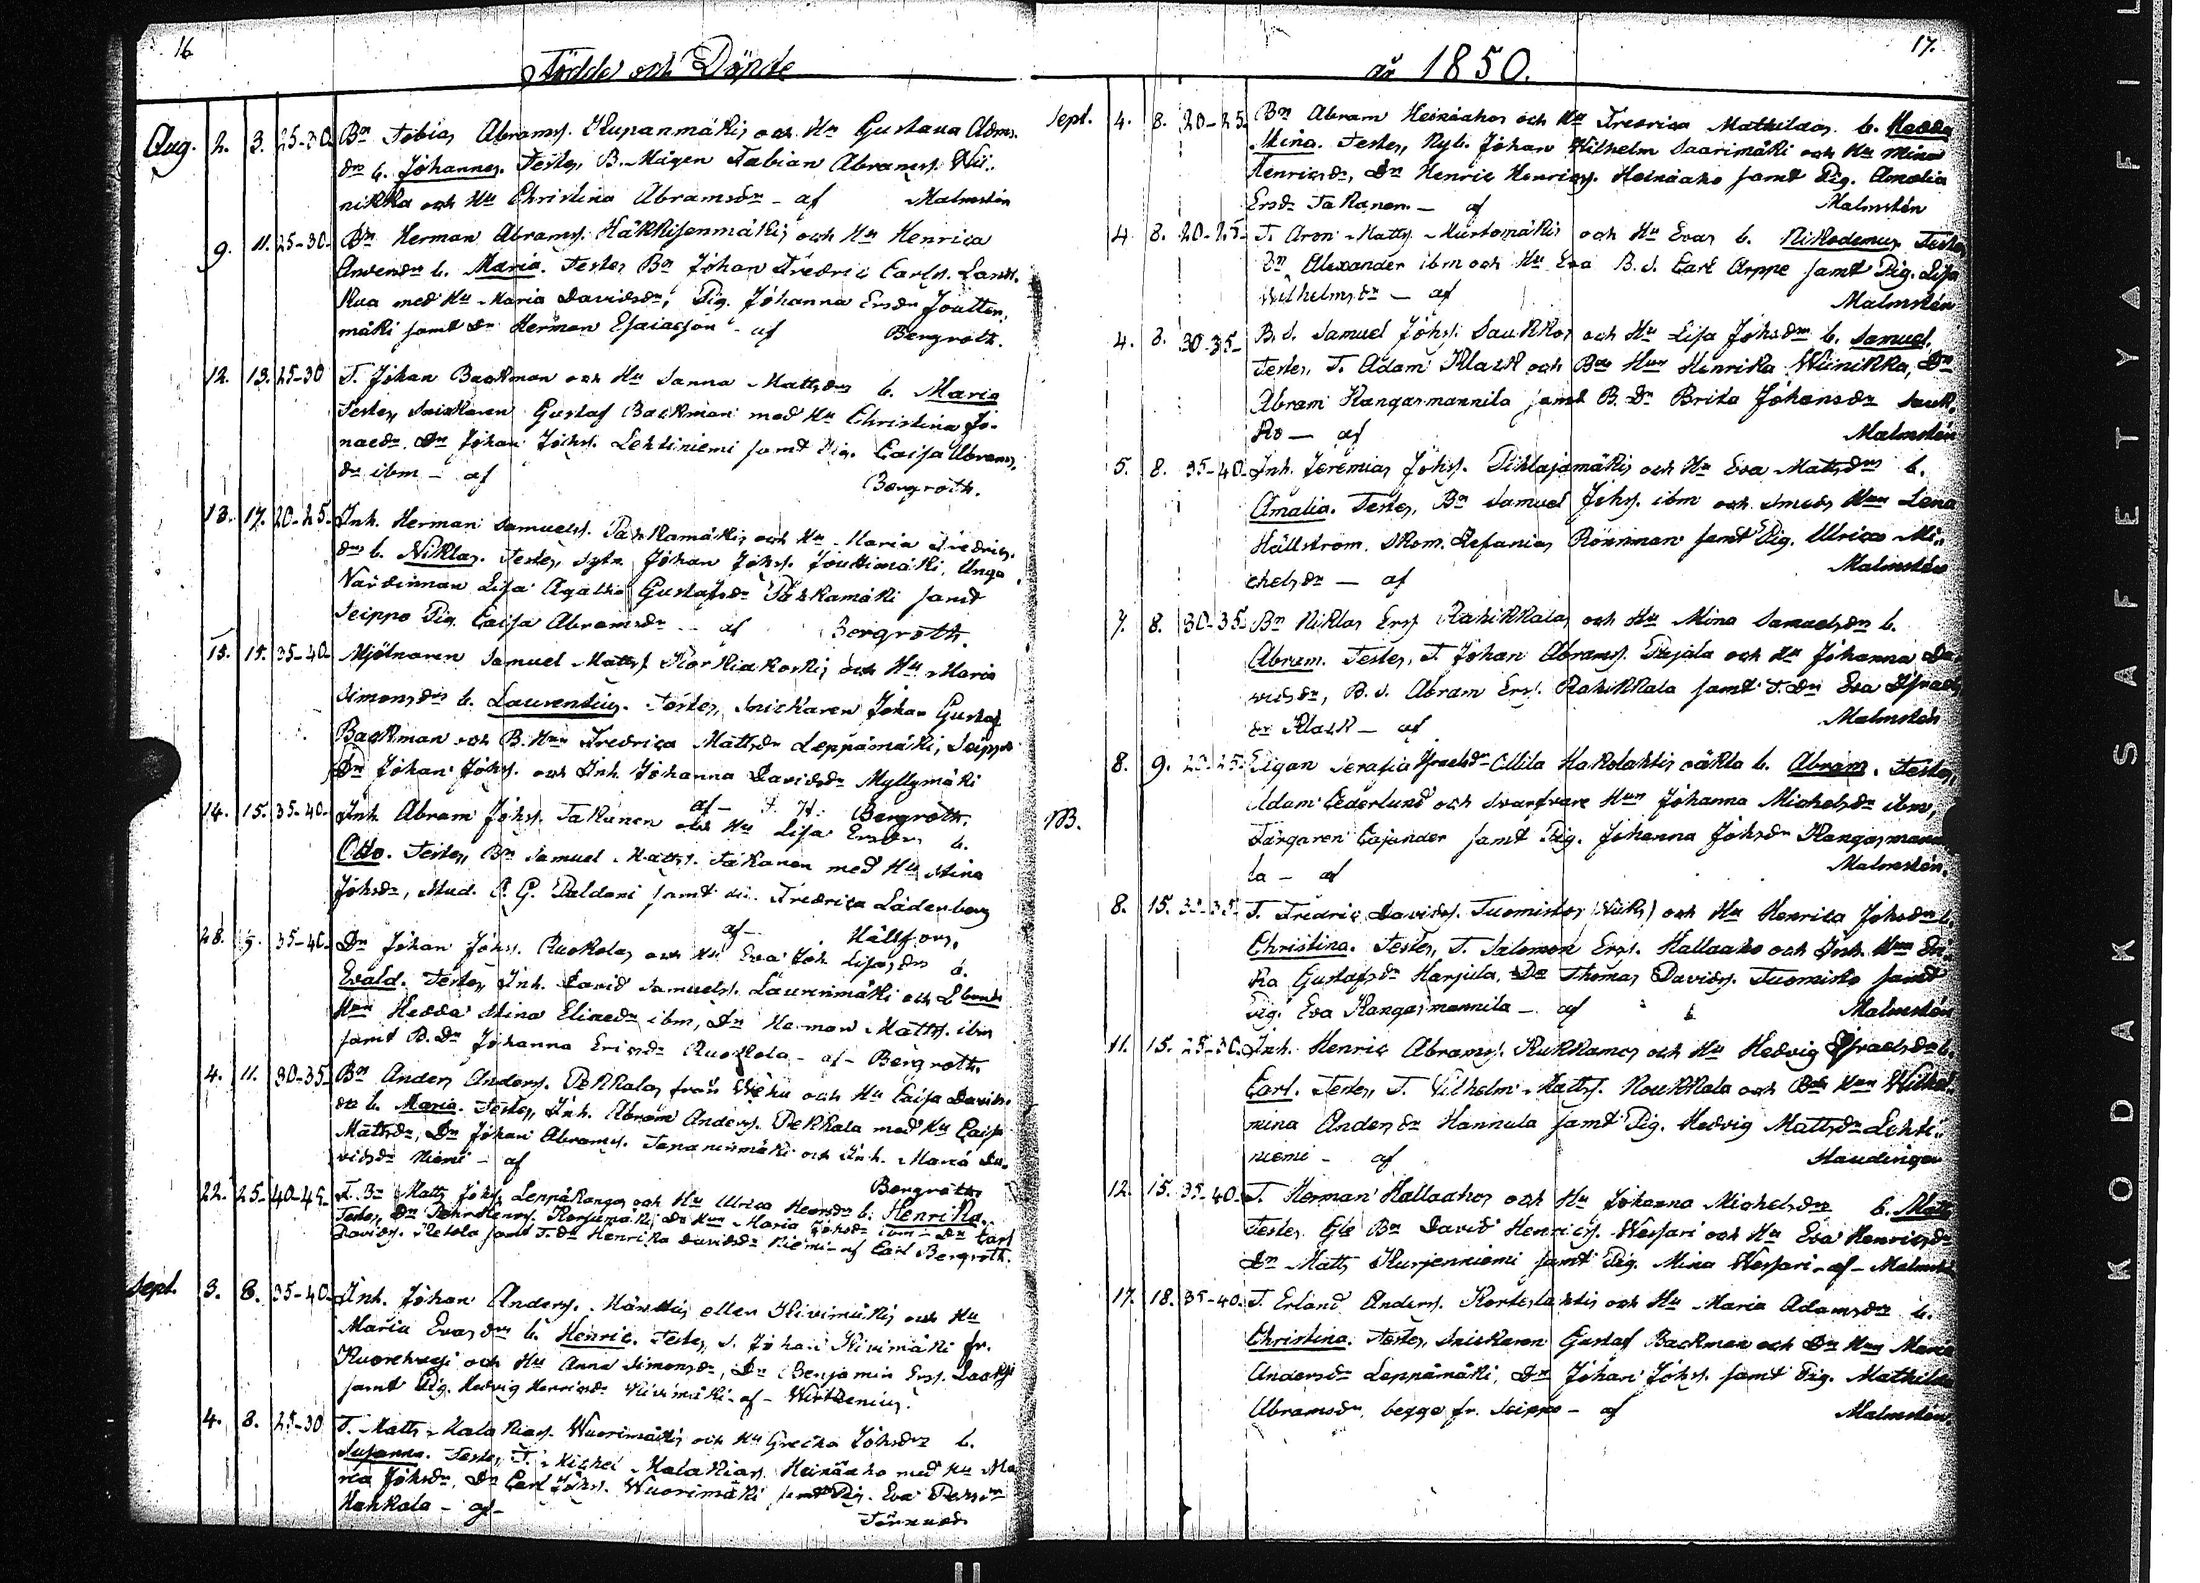 16
Födde och Döpde
Aug. 2. 3. 25-30. Bn Tobias Abramss. Kupanmäkis och Hu Gustava Adms.
dr b. Johannes. Testes, B. Mågen Fabian Abramss. Wii-
nikka och Hu Christina Abramsdr - af Malmstén
9. 11. 25-30. Bn Herman Abramss. Häkkisenmäkis och Hu Henrica
b. Maria. Testes Bn Johan Fredric Carls. Lank-
kua med Hu Maria Davidsdr, Pig. Johanna Ersdr Joutten-
mäki samt Dr Herman Esaiasson - af Bergroth.
12. 13. 25-30 T. Johan Backman och Hu Sanna Mattsdrs b. Maria
Testes, Snickaren Gustaf Backman med Hu Christina Jo-
naedr, Dr Johan Johss. Lehtiniemi samt Pig. Caisa Abrams-
dr ibm - af Bergroth.
13. 17. 20-25. Inh. Herman Samuelss. Paskamäkis och Hu Maria Fredrics-
drs b. Niklas. Testes, Sytn. Johan Johss. Jouttimäki, Unga
Värdinnan Lisa Agatha Gustafsdr Paskamäki samt
Seippo Pig. Caisa Abramsdr - af Bergroth.
15. 15. 35-40. Mjölnaren Samuel Mattss. Korkiakoskis och Hu Maria
Simonsdrs b. Laurentius. Testes, Snickaren Johan Gustaf
Backman och B. Hun Fredrica Mattsdr Leppämäki, Seippo
Dr Johan Johss. och Inh. Johanna Davidsdr Myllymäki
af - F. H. Bergroth.
14. 15. 35-40. Inh. Abram Johss. Takanen och Hu Lisa Ersdrs b.
Otto. Testes, Bn Samuel Mattss. Takanen med Hu Stina
Johsdr, Stud. P. G. Paldani samt Fredrica Ladenberg
af - Hällfors.
28. 35-40. Dr Johan Johss. Ruokolas och Hu Eva Joh. Lisasdrs b.
Evald. Testes, Inh. David Samuelss. Laurinmäki och
Hun Hedda Stina Eliaedr ibm, Dr Herman Mattss. ibm
samt B. Dr Johanna Ericsdr Ruokola - af - Bergroth.
4. 11. 30-35. Bn Anders Anderss. Pekkalas från Wiku och Hu Caisa Davids-
dr b. Maria. Testes, Inh. Abram Anderss. Pekkala med Hu Caisa
Mattsdr, Dr Johan Abramss. Tapaninmäki och Inh. Maria Da-
vidsdr Niemi - af Bergroth
22. 25. 40-45. T. Bn Matts Johss. Leppäkangas och Hu Ulrica Henrsdr b. Henrika.
Testes, Dr Henrss. Korjumäki, Dr Hun Maria Johsdr ibm - Dr Carl
Davidss. Ketola samt T. Dr Henrika Davidsdr Niemi - af Carl Bergroth.
Sept. 3. 8. 35-40. Inh. Johan Anderss. Härkkis eller Kivimäkis och Hu
Maria Evasdrs b. Henric. Testes, S. Johan Kivimäki fr.
Kuorehvesi och Hu Anna Simonsdr, Dr Benjamin Erss.
samt Pig. Hedvig Henricsdr Kivimäki - af - Wirtzenius.
4. 8. 25-30 T. Matts Malakiass. Wuorimäkis och Hu Greta Johsdr b.
Susanna. Testes, T. Michel Malakiass. Heinäaho med Hu Ma-
ria Johsdr, Dr Carl Johss. Wuorimäki samt Pig. Eva
Hahkala - af - Törnudd
17.
år 1850.
Sept. 4. 8. 20-25. Bn Abram Heinäahos och Hu Fredrica Mathildas. b. Hedda
Mina. Testes, Nyb. Johan Wilhelm Saarimäki och Hu Mina
Henricsdr, Dr Henric Henricss. Heinäaho samt Pig. Amalia
Ersdr Takanen - af Malmstén
4. 8. 20-25. T. Aron Mattss. Murtomäkis och Hu Evas b. Nikodemus. Testes,
Dr Alexander ibm och Hu Eva B. S. Carl Arppe samt Pig. Lisa
Wilhelmsdr - af Malmstén
4. 8. 30-35. B. S. Samuel Johss. Saukkos och Hu Lisa Johsdrs b. Samuel.
Testes, T. Adam Klack och Bns Hun Henrika Wiinikka, Dr
Abram Kangasmannila samt B. Dr Brita Johansdr Sauk-
ko - af Malmstén
5. 8. 35-40. Inh. Jeremias Johss. Pihlajamäkis och Hu Eva Mattsdrs b.
Amalia. Testes, Bn Samuel Johss. ibm och Smeds Hun Lena
Hällström, Skom. Zefanias Rönnman samt Pig. Ulrica Mi-
chelsdr - af Malmstén
7. 8. 30-35. Bn Niklas Erss. Rahikkalas och Hu Mina Samuelsdrs b.
Abram. Testes, T. Johan Abramss. Pajala och Hu Johanna Da-
vidsdr, B. S. Abram Erss. Rahikkala samt T. Dr Eva Israels-
dr Klack - af Malmstén
8. 9. 20-25. Pigan Serafia Israelsdr Ollila Hakolahtis oäkta b. Abram. Testes,
NB. Adam Cederlund och Svarfvare Hun Johanna Michelsdr ibm,
Färgaren Cajander samt Pig. Johanna Johsdr Kangasmanni-
la - af Malmstén.
8. 15. 30-35. T. Fredric Davidss. Tuomistos (Wiik) och Hu Henrica Johsdr b.
Christina. Testes, T. Salomon Erss. Hallaaho och Inh. Hun
Gustafsdr Harjula, Dr Thomas Davidss. Tuomisto samt
Pig. Eva Kangasmannila - af Malmstén
11. 15. 25-30. Inh. Henric Abramss. Kukkamos och Hu Hedvig Israelsdr b.
Carl. Testes, T. Vilhelm Mattss. Noukkala och Bds Hun Wilhel-
mina Andersdr Hannula samt Pig. Hedvig Mattsdr Lehti-
niemi - af Standinger
12. 15. 35-40. T. Herman Hallaahos och Hu Johanna Michelsdrs b. Matts
Testes, Gle Bn David Henricss. Wessari och Hu Eva Henricsdr
Dr Matts Kurjenniemi samt Pig. Mina Wessari - af - Malmstén
17. 18. 35-40. T. Erland Anderss. Korteslahtis och Hu Maria Adamsdrs b.
Christina. Testes, Snickaren Gustaf Backman och Dr Hun Maria
Andersdr Leppämäki, Dr Johan Johss. samt Pig. Mathilda
Abramsdr, begge fr. Seippo - af Malmstén.
KODAK SAFETY AFIL